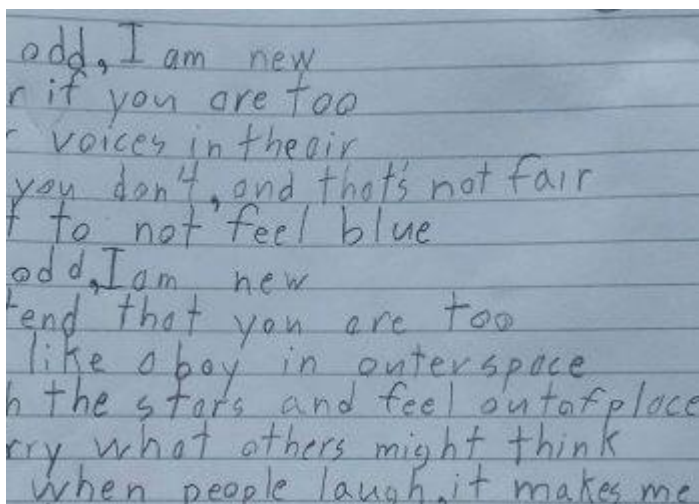 odd, I am new
r if you are too
voices in theair
you don't, and that's not fair
t to not feel blue
odd, I am new
tend that you are too
like a boy in outerspace
h the stars and feel outofplace
rry what others might think
when people laugh, it makes me